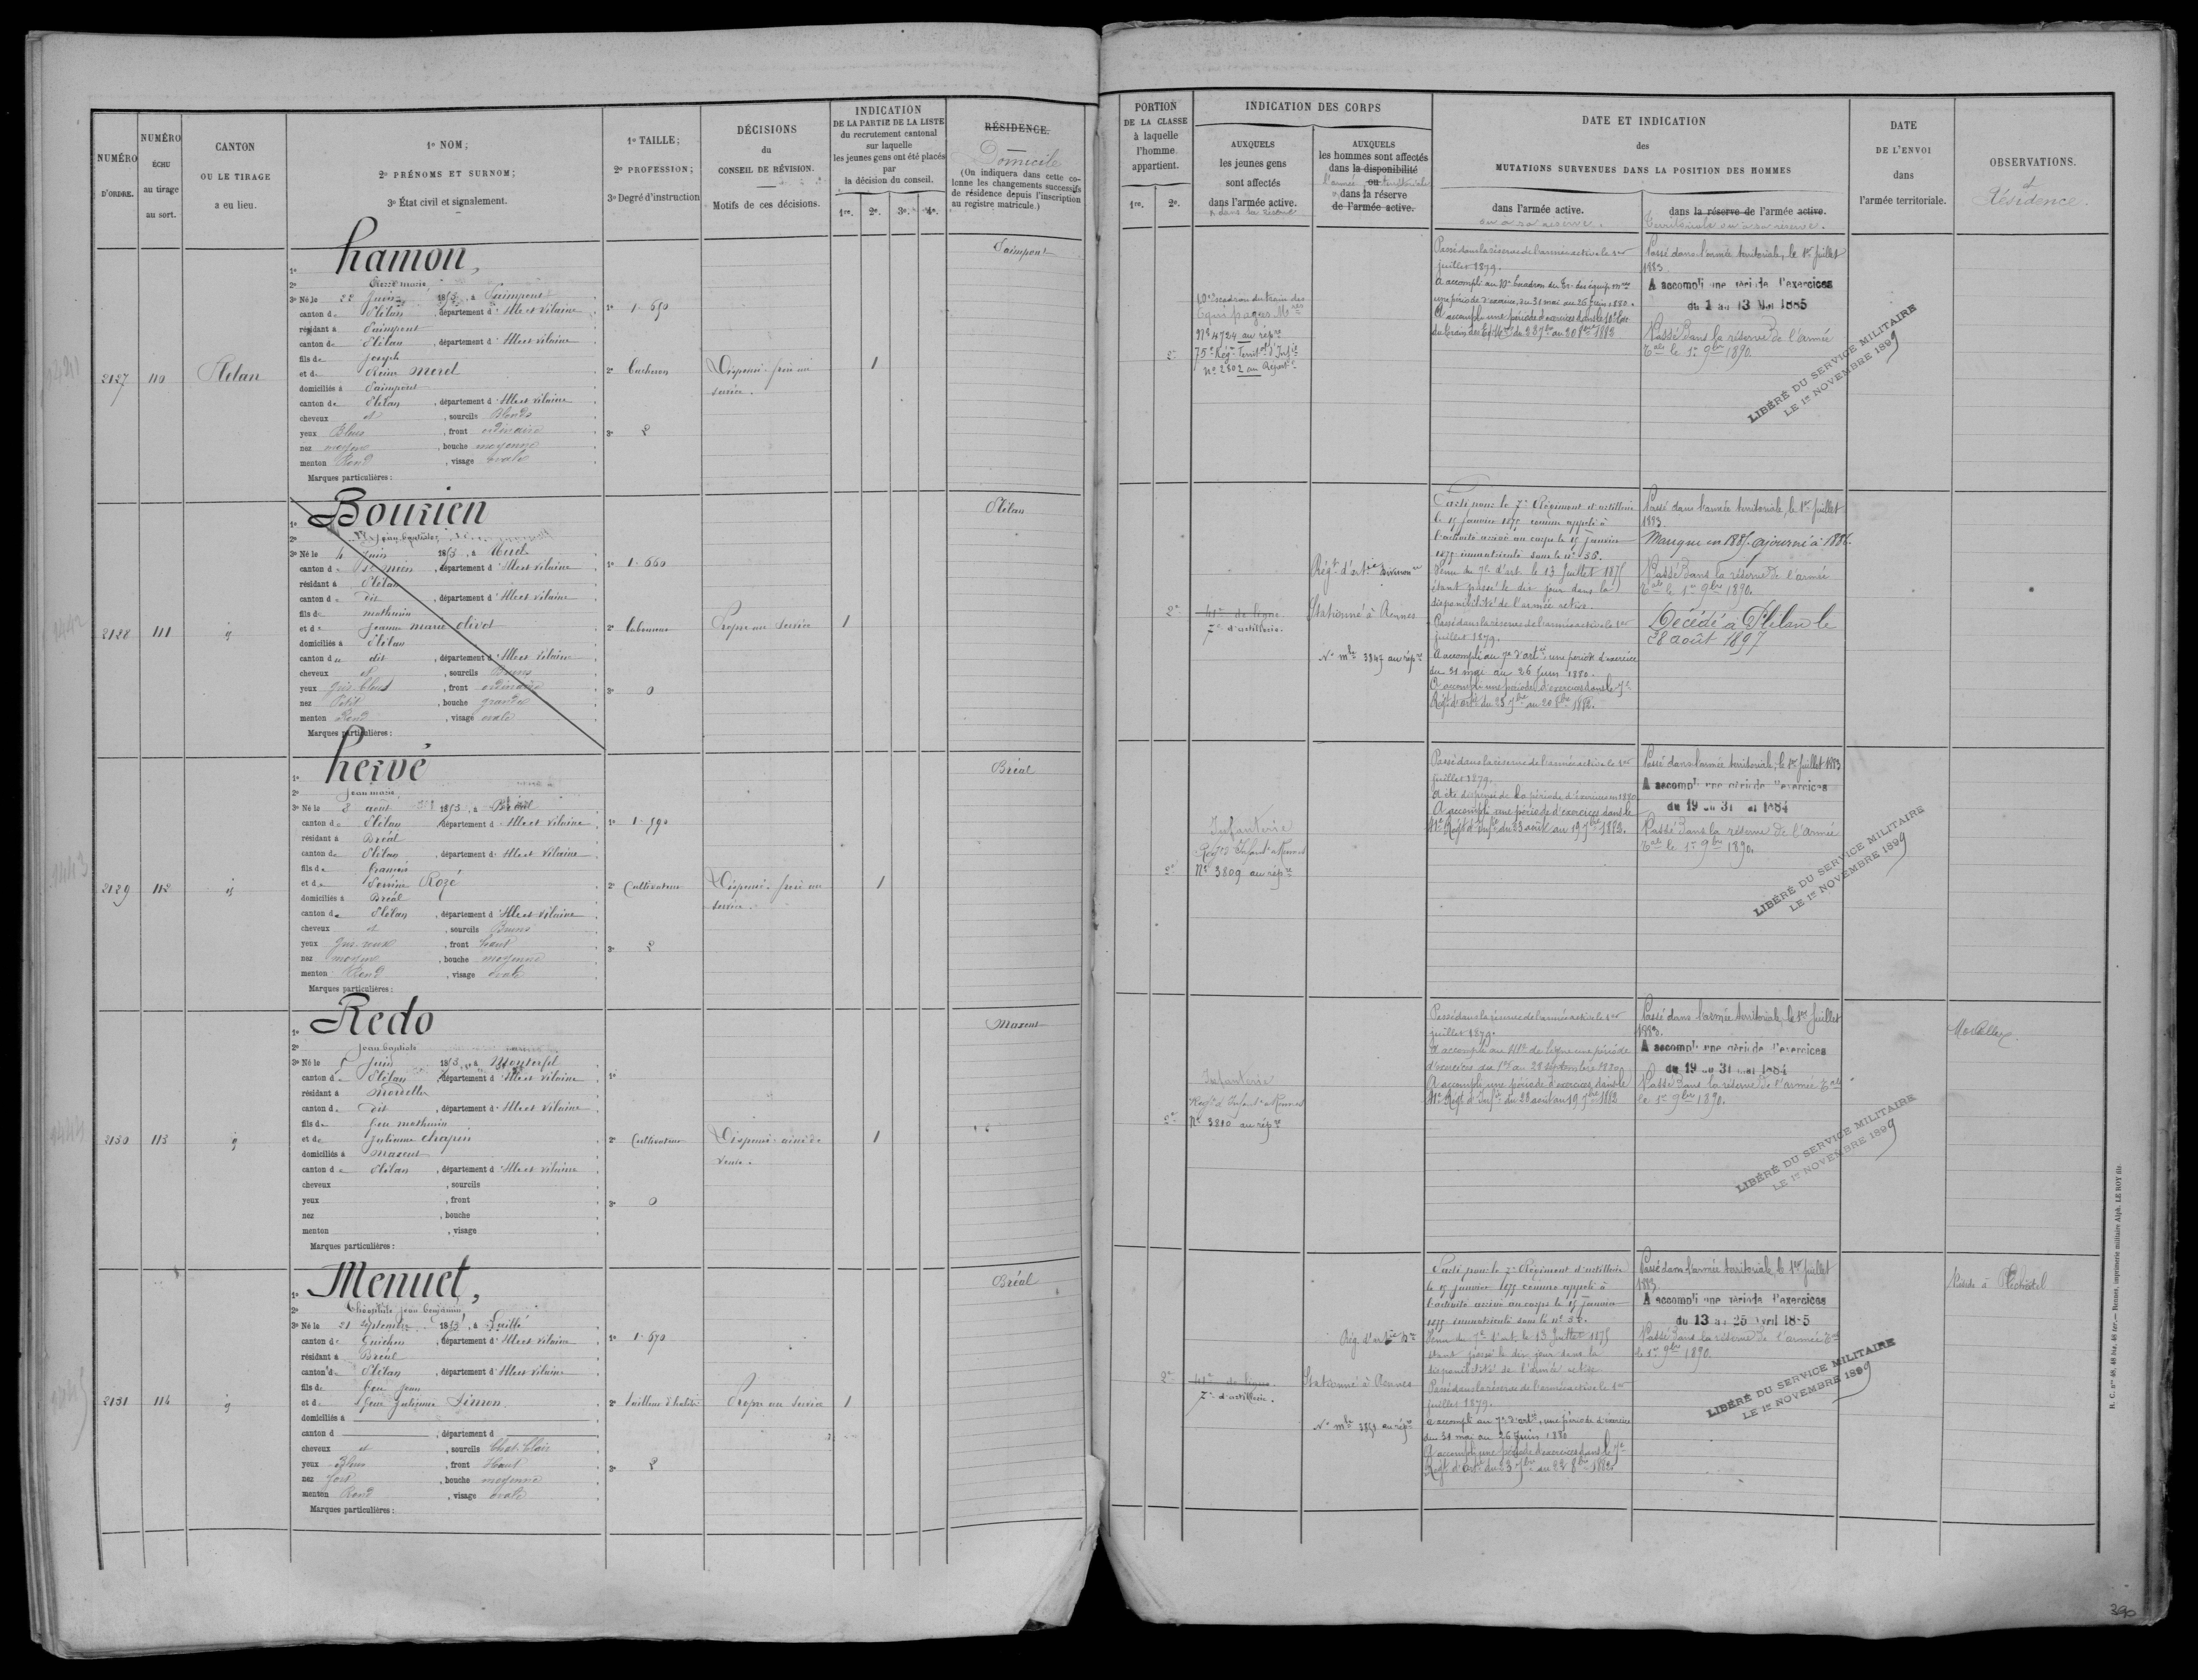 NUMÉRO D'ORDRE.
NUMÉRO ÉCHU au tirage au sort.
CANTON OU LE TIRAGE a eu lieu.
1º NOM;
2º PRÉNOMS ET SURNOM;
3º État civil et signalement.
1º TAILLE;
2º PROFESSION;
3º Degré d'instruction
DÉCISIONS
du
CONSEIL DE RÉVISION.
Motifs de ces décisions.
INDICATION
DE LA PARTIE DE LA LISTE
du recrutement cantonal
sur laquelle
les jeunes gens ont été placés
par
la décision du conseil.
1re. 2e. 3e. 4e.
RÉSIDENCE.
Domicile
(On indiquera dans cette colonne les changements successifs de résidence depuis l'inscription au registre matricule.)
PORTION
DE LA CLASSE
à laquelle
l'homme
appartient.
1re. 2e.
INDICATION DES CORPS
AUXQUELS
les jeunes gens
sont affectés
dans l'armée active.
AUXQUELS
les hommes sont affectés
dans la disponibilité
ou
dans la réserve
de l'armée active.
DATE ET INDICATION
des
MUTATIONS SURVENUES DANS LA POSITION DES HOMMES
dans l'armée active.
ou à sa réserve.
dans la réserve de l'armée active.
Territoriale ou à sa réserve.
DATE
DE L'ENVOI
dans
l'armée territoriale.
OBSERVATIONS.
et
Résidence.
2127
110
Plélan
1º hamon,
2º Pierre marie
3º Né le 22 Juin 1853, à Paimpont
canton de Plélan, département d'Ille et Vilaine
résidant à Paimpont
canton de Plélan, département d'Ille et Vilaine
fils de Joseph
et de Reine Merel
domiciliés à Paimpont
canton de Plélan, département d'Ille et Vilaine
cheveux et, sourcils Blonds
yeux Bleus, front ordinaire
nez moyen, bouche moyenne
menton Rond, visage ovale
Marques particulières:
1º 1.650
2º bucheron
3º 2
Dispensé: frère au
service.
1
Paimpont
2e
10e escadron du train des
Equipages Mres
Nº 4724 au répre
75e Régt Territal d'Infie
nº 2802 au Répert
Passé dans la réserve de l'armée active le 1er
juillet 1879.
A accompli au 10e Escadron du Tr. des équip. mres
une période d'exercice, du 31 mai au 26 juin 1880.
A accompli une période d'exercices dans le 10e Esc
du train des Eq. Mres du 23 7bre au 20 8bre 1882
Passé dans l'armée territoriale, le 1er juillet
1883
A accompli une période d'exercices
du 1 au 13 Mai 1885
Passé dans la réserve de l'armée
Tale le 1er 9bre 1890.
LIBÉRÉ DU SERVICE MILITAIRE
LE 1er NOVEMBRE 1899
2128
111
1º Bourien
2º Jean baptiste
3º Né le 4 Juin 1853, à Muel
canton de St Méen, département d'Ille et Vilaine
résidant à Plélan
canton de dit, département d'Ille et Vilaine
fils de mathurin
et de Jeanne marie olivot
domiciliés à Plélan
canton de dit, département d'Ille et Vilaine
cheveux et, sourcils Bruns
yeux Gris bleus, front ordinaire
nez Petit, bouche grande
menton Rond, visage ovale
Marques particulières:
1º 1.660
2º laboureur
3º 0
Propre au service
1
Plélan
2e
41e de ligne
7e d'artillerie.
Régt d'artie Divisionre
Stationné à Rennes
Nº mle 3847 au répre
Parti pour le 7e Régiment d'artillerie
le 15 janvier 1875 comme appelé à
l'activité arrivé au corps le 15 janvier
1875 immatriculé sous le nº 56.
Venu du 7e d'art. le 13 Juillet 1875
étant passé le dix jour dans la
disponibilité de l'armée active.
Passé dans la réserve de l'armée active le 1er
juillet 1879.
A accompli au 7e d'artie une période d'exercice
du 31 mai au 26 Juin 1880.
A accompli une période d'exercices dans le 7e
Régt d'artie du 23 7bre au 20 8bre 1882.
Passé dans l'armée territoriale, le 1er juillet
1883.
Manque en 1885. ajourné à 1886.
Passé dans la réserve de l'armée
Tale le 1er 9bre 1890.
Décédé à Plélan le
28 août 1897
2129
112
1º hervé
2º Jean marie
3º Né le 8 août 1853, à Bréal
canton de Plélan, département d'Ille et Vilaine
résidant à Bréal
canton de Plélan, département d'Ille et Vilaine
fils de francois
et de Perrine Rozé
domiciliés à Bréal
canton de Plélan, département d'Ille et Vilaine
cheveux et, sourcils Bruns
yeux Gris roux, front haut
nez moyen, bouche moyenne
menton Rond, visage ovale
Marques particulières:
1º 1.590
2º Cultivateur
3º 2
Dispensé: frère au
service.
1
Bréal
2e
Infanterie
Régt d'Infant. Rennes
Nº 3809 au répre
Passé dans la réserve de l'armée active le 1er
Juillet 1879.
A été dispensé de la période d'exercices en 1880
A accompli une période d'exercices dans le
41e Régt d'Infie du 23 août au 19 7bre 1882.
Passé dans l'armée territoriale, le 1er juillet 1883
A accompli une période d'exercices
du 19 au 31 Mai 1884
Passé dans la réserve de l'armée
Tale le 1er 9bre 1890.
LIBÉRÉ DU SERVICE MILITAIRE
LE 1er NOVEMBRE 1899
2130
113
1º Redo
2º Jean baptiste
3º Né le 5 Juin 1853, à Monterfil
canton de Plélan, département d'Ille et Vilaine
résidant à Mordelles
canton de dit, département d'Ille et Vilaine
fils de feu mathurin
et de Julienne chapin
domiciliés à Maxent
canton de Plélan, département d'Ille et Vilaine
cheveux, sourcils
yeux, front
nez, bouche
menton, visage
Marques particulières:
1º
2º Cultivateur
3º 0
Dispensé: ainé de
veuve.
1
Maxent
2e
Infanterie
Régt d'Infant. Rennes
Nº 3810 au répre
Passé dans la réserve de l'armée active le 1er
juillet 1879.
A accompli au 41e de ligne une période
d'exercices du 1er au 28 septembre 1880.
A accompli une période d'exercices dans le
41e Régt d'Infie du 23 août au 19 7bre 1882
Passé dans l'armée territoriale, le 1er Juillet
1883.
A accompli une période d'exercices
du 19 au 31 Mai 1884
Passé dans la réserve de l'armée Tale
le 1er 9bre 1890.
LIBÉRÉ DU SERVICE MILITAIRE
LE 1er NOVEMBRE 1899
Mordelles
2131
114
1º Menuet,
2º Théophile Jean benjamin
3º Né le 21 Septembre 1853, à
canton de Guichen, département d'Ille et Vilaine
résidant à Bréal
canton de Plélan, département d'Ille et Vilaine
fils de feu Jean
et de feue Julienne Simon
domiciliés à
canton d, département d
cheveux et, sourcils Chat. Clairs
yeux Bleus, front Haut
nez fort, bouche moyenne
menton Rond, visage ovale
Marques particulières:
1º 1.670
2º tailleur d'habits
3º 2
Propre au service
1
Bréal
2e
41e de ligne
7e d'artillerie.
Rég. d'artie
Stationné à Rennes
Nº mle 3851 au répre
Parti pour le 7e Régiment d'artillerie
le 15 janvier 1875 comme appelé à
l'activité arrivé au corps le 15 janvier
1875 immatriculé sous le nº
Venu du 7e d'art. le 13 Juillet 1875
étant passé le dix jour dans la
disponibilité de l'armée active
Passé dans la réserve de l'armée active le 1er
juillet 1879.
A accompli au 7e d'artie, une période d'exercice
du 31 mai au 26 Juin 1880
A accompli une période d'exercices dans le 7e
Régt d'artie du 23 7bre au 22 8bre 1882.
Passé dans l'armée territoriale, le 1er juillet
1883
A accompli une période d'exercices
du 13 au 25 Avril 1885
Passé dans la réserve de l'armée Tale
le 1er 9bre 1890.
LIBÉRÉ DU SERVICE MILITAIRE
LE 1er NOVEMBRE 1899
Réside à
R. C. nos 48, 48 bis, 48 ter.— Rennes, imprimerie militaire Alph. LE ROY fils.
390